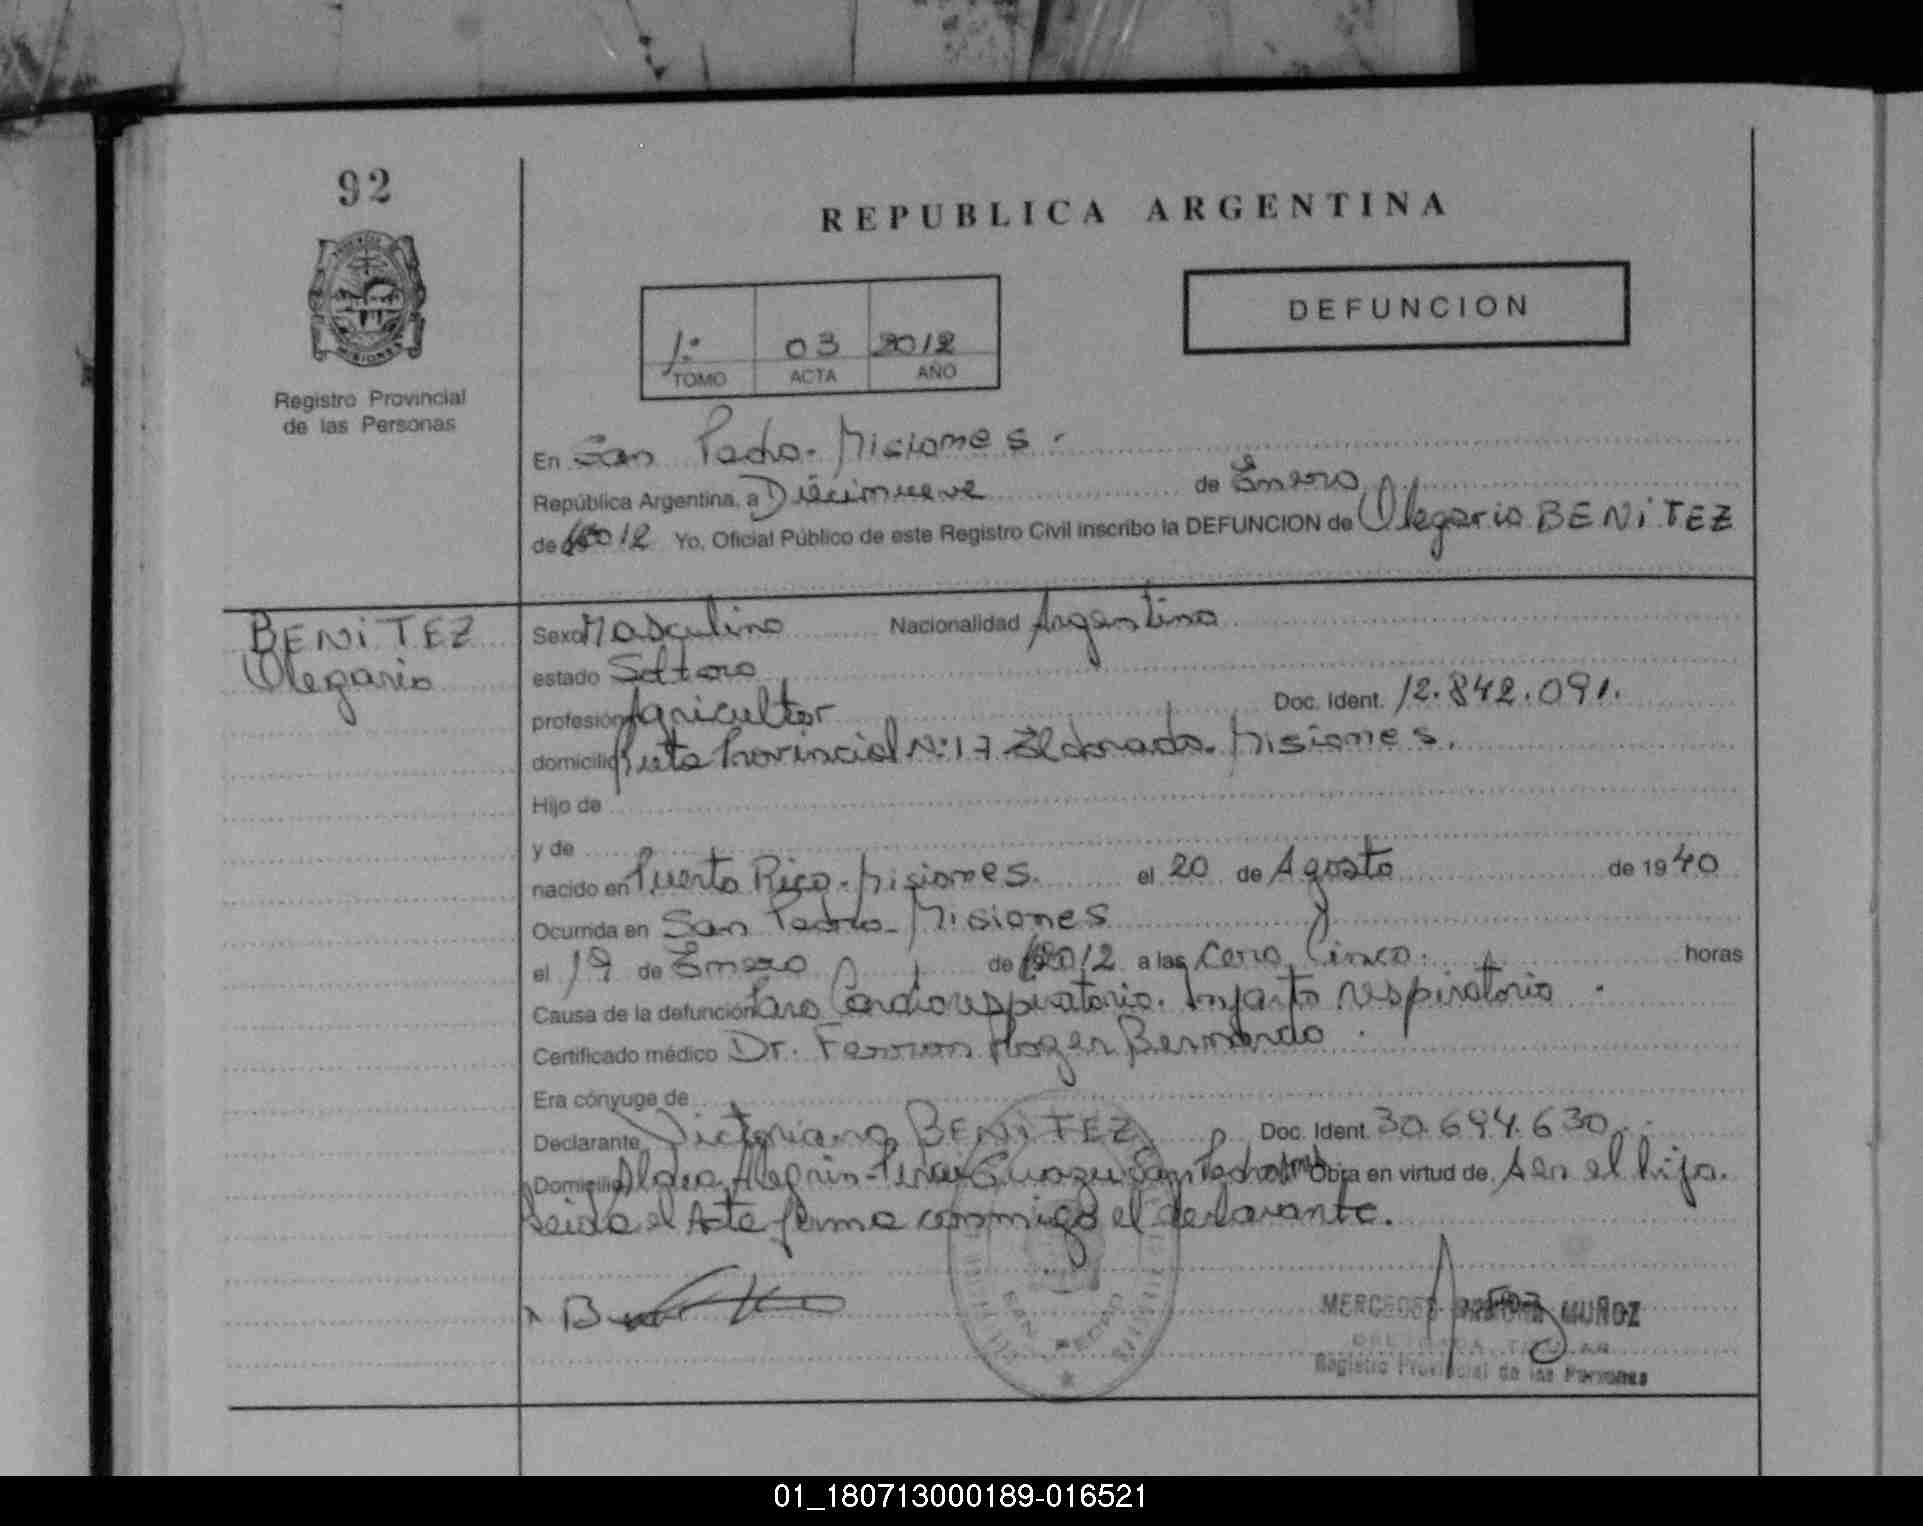 92
REPUBLICA ARGENTINA
DEFUNCION
1º 03 2012
TOMO ACTA AÑO
Registro Provincial
de las Personas
En San Pedro - Misiones.
República Argentina, a Diecinueve de Enero
de 2012 Yo, Oficial Público de este Registro Civil inscribo la DEFUNCION de Olegario BENiTEZ
BENiTEZ
Olegario
Sexo Masculino Nacionalidad Argentina
estado Soltero
profesión Agricultor Doc. Ident. 12.842.091.
domicilio Ruta Provincial Nº 17 Eldorado. Misiones.
Hijo de
y de
nacido en Puerto Rico - Misiones. el 20 de Agosto de 1940
Ocurrida en San Pedro - Misiones
el 19 de Enero de 2012 a las Cero Cinco. horas
Causa de la defunción Paro Cardiorespiratorio. Infarto respiratorio.
Certificado médico Dr. Roger Bernardo.
Era cónyuge de
Declarante Victoriano BENiTEZ Doc. Ident. 30.694.630.
Domicilio Aldea Alegria - Guazu San Pedro Mnes Obra en virtud de Ser el hijo.
Leida el Acta firma conmigo el declarante.
SAN PEDRO
MERCEDES MUÑOZ
Registro Provincial de las Personas
01_180713000189-016521